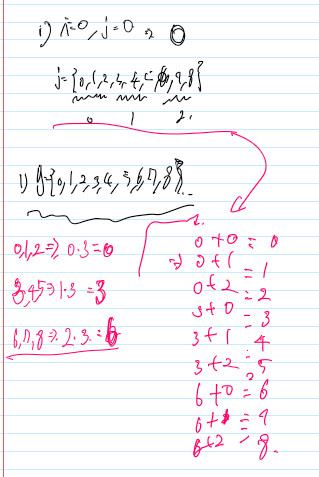 i) i=0, j=0 ⇒ 0
j={0,1,2,3,4,5,6,7,8}
0 1 2.
1) g={0,1,2,3,4,5,6,7,8}
0,1,2 ⇒ 0·3=0
3,4,5 ⇒ 1·3=3
6,7,8 ⇒ 2·3=6
0+0=0
⇒ 0+1=1
0+2=2
3+0=3
3+1=4
3+2=5
6+0=6
6+1=7
6+2=8.